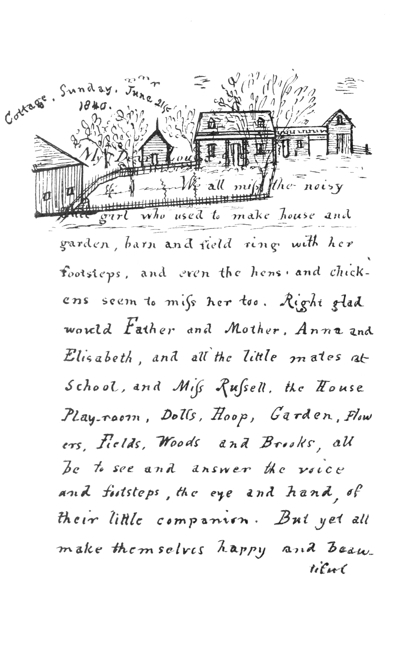 Cottage, Sunday, June 21st
1840.
My Dear Louisa
We all miss the noisy
little girl who used to make house and
garden, barn and field ring with her
footsteps, and even the hens and chick-
ens seem to miss her too. Right glad
would Father and Mother, Anna and
Elisabeth, and all the little mates at
School, and Miss Russell, the House
Play-room, Dolls, Hoop, Garden, Flow
ers, Fields, Woods and Brooks, all
be to see and answer the voice
and footsteps, the eye and hand, of
their little companion. But yet all
make themselves happy and beau-
tiful